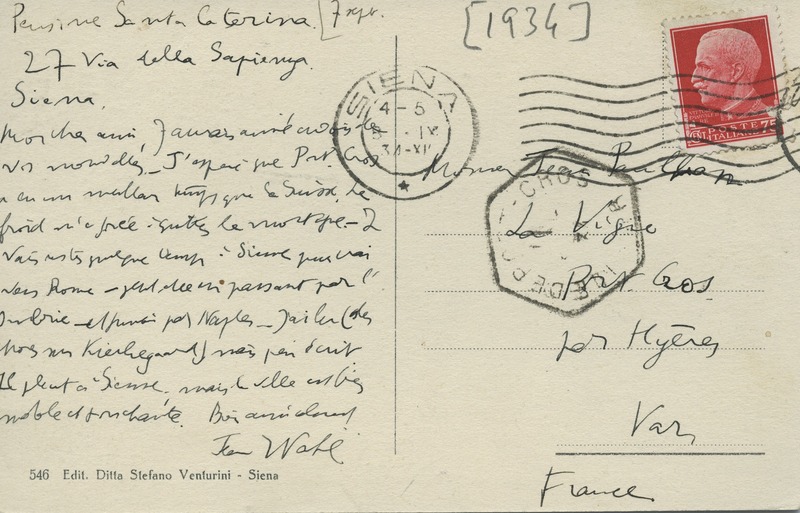 Pensione Santa Caterina. [7 sept.
[1934]
27 Via della Sapienza.
Siena.
Mon cher ami, J'aurais aimé avoir de
vos nouvelles_ J'espère que Port-Cros
a eu un meilleur temps que la Suisse. Le
froid m'a forcé à quitter la montagne_ Je
vais rester quelque temps à Sienne, puis irai
vers Rome_ peut-être en passant par l'
Ombrie_ et puis par Naples_ J'ai lu (des
sur Kierkegaard) mais peu écrit
Il pleut à Sienne, mais la ville est bien
noble et touchante. Bien amicalement
Jean Wahl
546 Edit. Ditta Stefano Venturini - Siena
SIENA
4-5
IX
34-XII
POSTE
ITALIANE
75
PORT-CROS
VAR
Monsieur Jean Paulhan
La Vigie
Port-Cros
par Hyères
Var
France